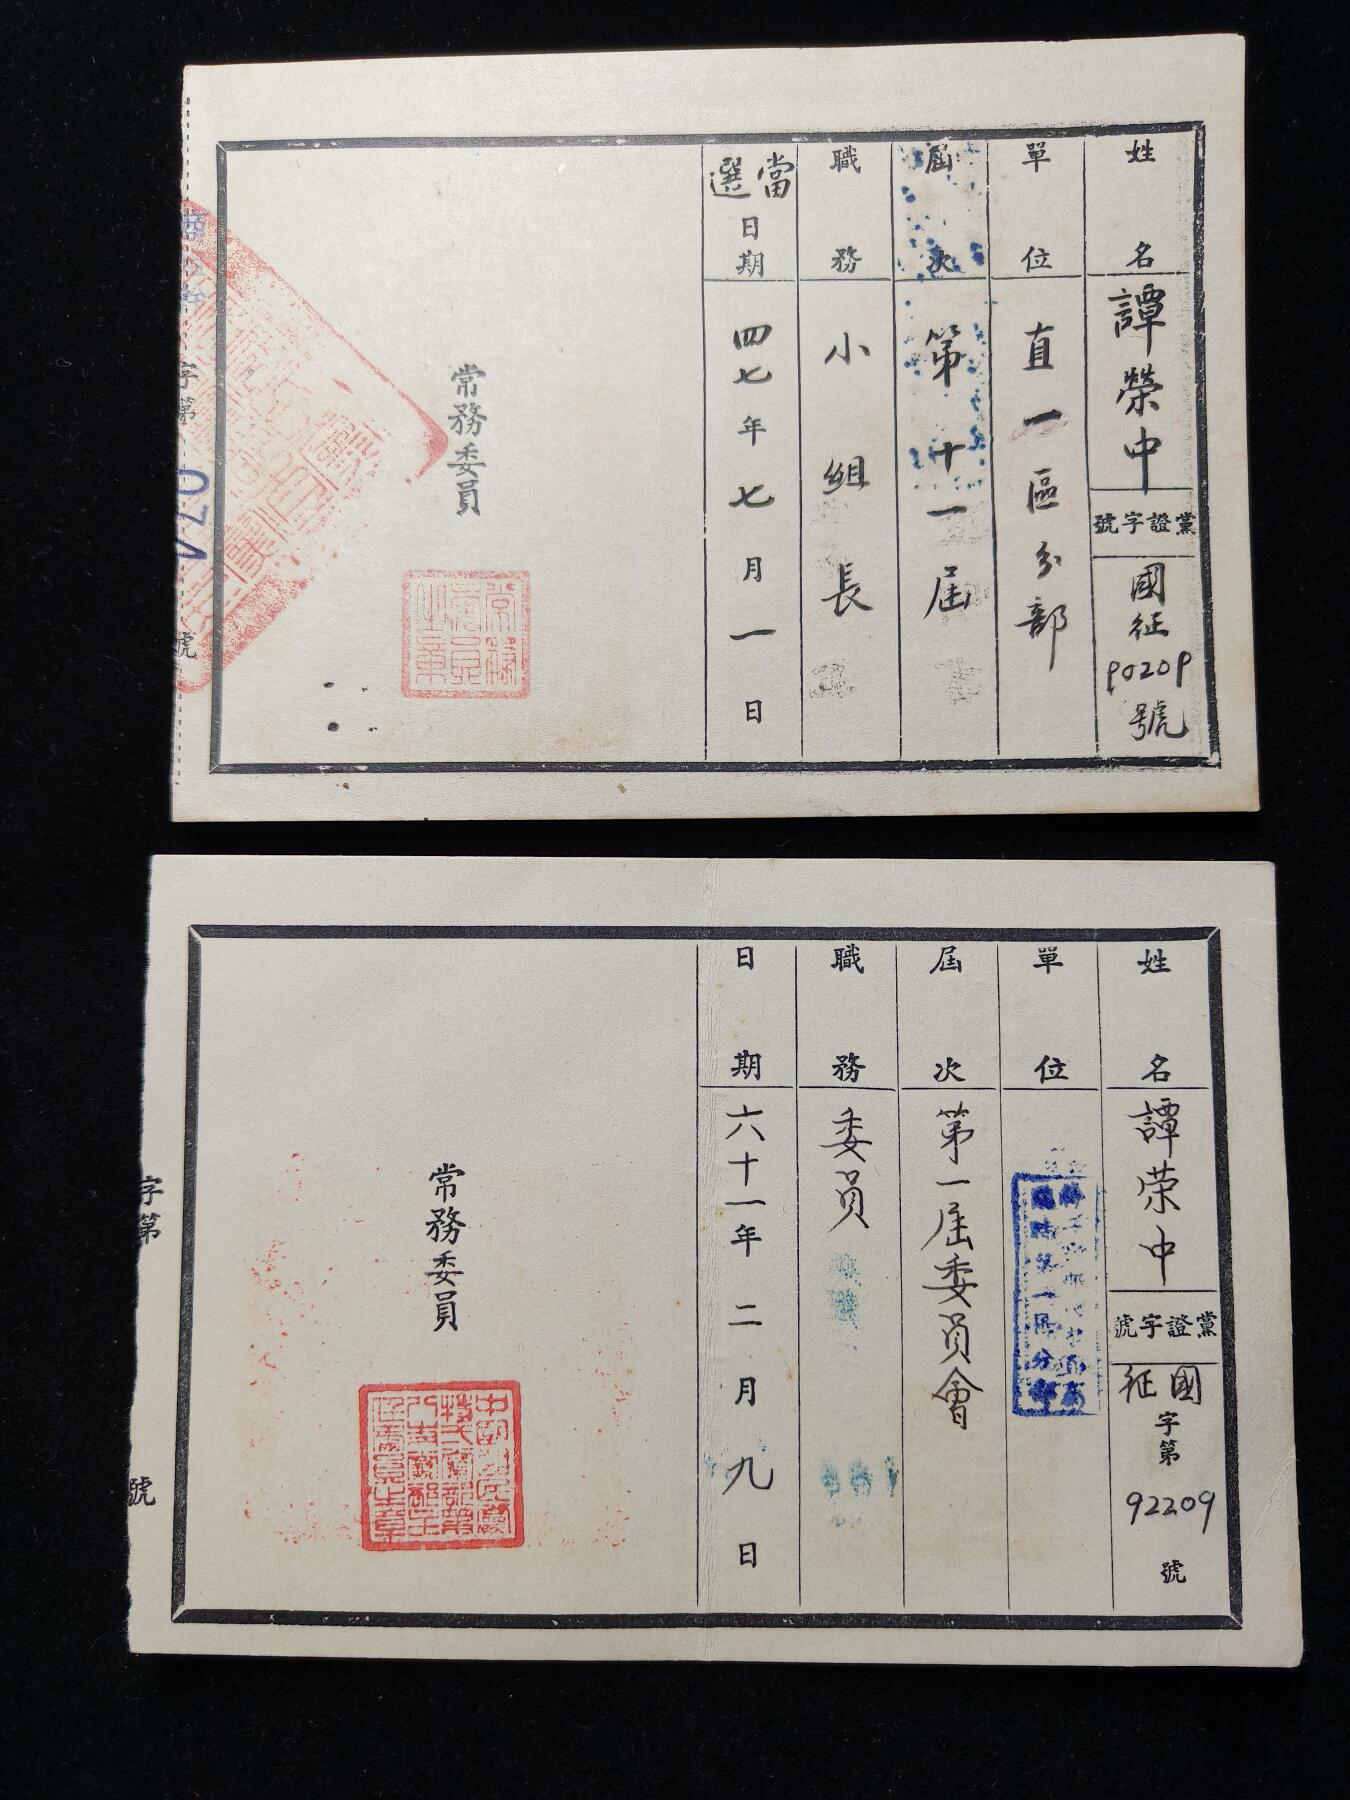 姓名
譚榮中
黨證字號
國征
90209
號
單位
直一區分部
屆次
第十一屆
職務
小組長
當選
日期
四七年七月一日
常務委員
字第
號
姓名
譚荣中
黨證字號
國征
字第
92209
號
單位
屆次
第一屆委員會
職務
委員
日期
六十一年二月九日
常務委員
字第
號